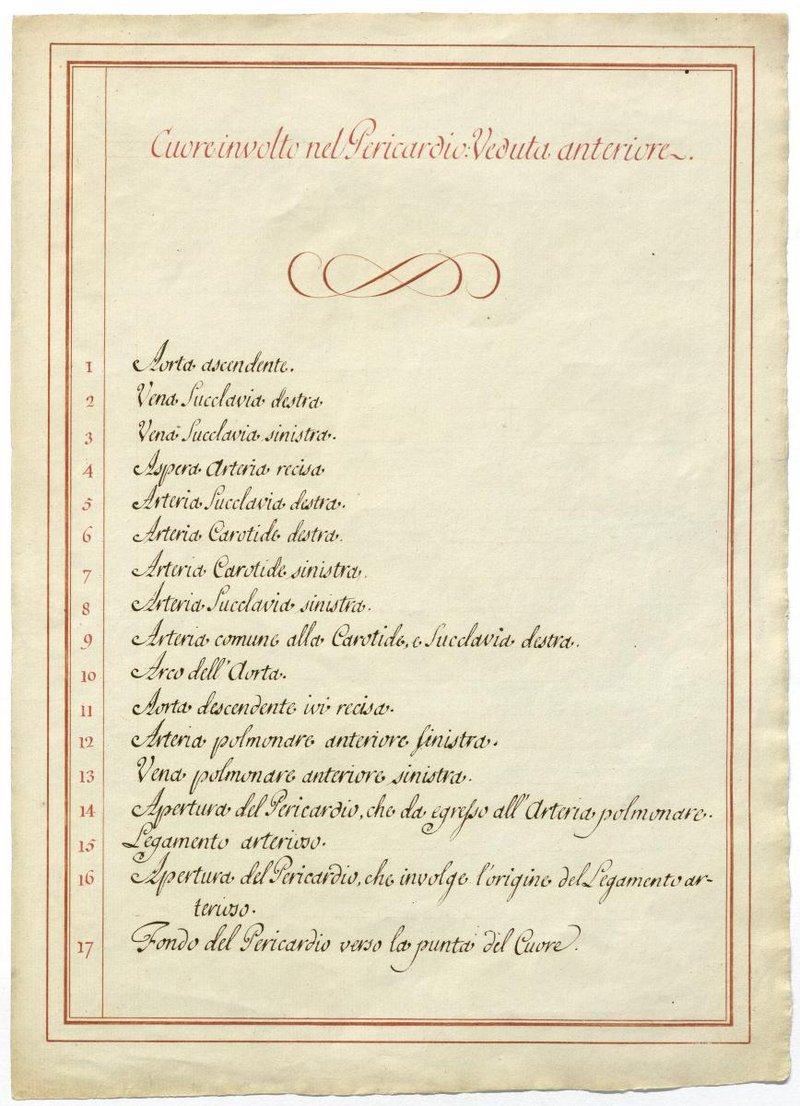 Cuore involto nel Pericardio: Veduta anteriore.
1 Aorta ascendente.
2 Vena Succlavia destra
3 Vena Succlavia sinistra.
4 Aspera Arteria recisa
5 Arteria Succlavia destra.
6 Arteria Carotide destra.
7 Arteria Carotide sinistra.
8 Arteria Succlavia sinistra.
9 Arteria comune alla Carotide, e Succlavia destra.
10 Arco dell'Aorta.
11 Aorta descendente ivi recisa.
12 Arteria polmonare anteriore sinistra.
13 Vena polmonare anteriore sinistra.
14 Apertura del Pericardio, che da egresso all'Arteria polmonare.
15 Legamento arterioso.
16 Apertura del Pericardio, che involge l'origine del Legamento ar-
terioso.
17 Fondo del Pericardio verso la punta del Cuore.